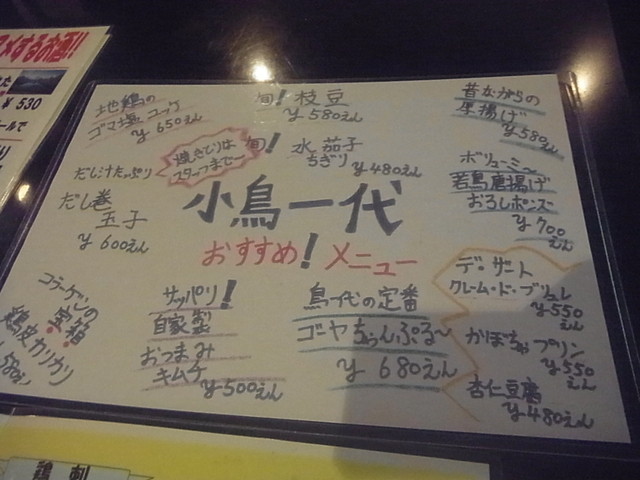 地鶏の
ゴマ塩ユッケ
¥650えん
旬!枝豆
¥580えん
昔ながらの
厚揚げ
¥580えん
焼きとりは
スタッフまで〜
旬!水茄子
ちぎり
¥480えん
だし汁たっぷり
だし巻
玉子
¥600えん
ボリューミー
若鳥唐揚げ
おろしポンズ
¥700えん
小鳥一代
おすすめ!メニュー
コラーゲンの
宝箱
鶏皮カリカリ
サッパリ!
自家製
おつまみ
キムチ
¥500えん
鳥一代の定番
ゴーヤちゃんぷる〜
¥680えん
デザート
クレーム・ド・ブリュレ
¥550えん
かぼちゃプリン
¥550えん
杏仁豆腐
¥480えん
¥530
鶏刺